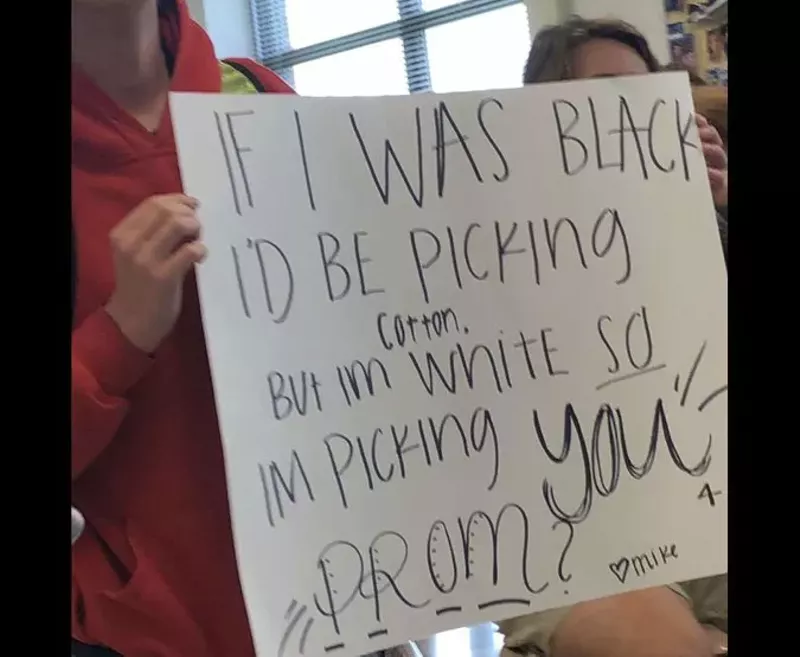 IF I WAS BLACK
I'D BE PICKING
COTTON.
BUT IM WHITE SO
IM PICKING YOU
4-
PROM?
♡mike